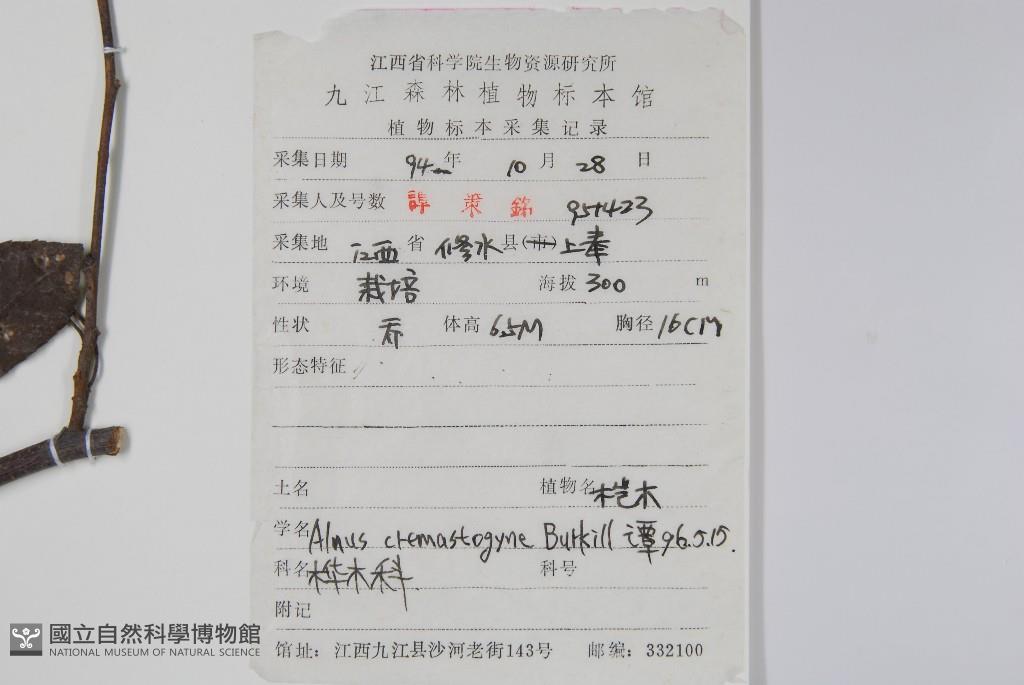 江西省科学院生物资源研究所
九江森林植物标本馆
植物标本采集记录
采集日期 94年 10月 28日
采集人及号数 譚策銘 951423
采集地 江西省 修水县(市)上奉
环境 栽培 海拔 300 m
性状 乔 体高 6.5M 胸径 16CM
形态特征
土名 植物名 桤木
学名 Alnus cremastogyne Burkill 谭96.5.15.
科名 桦木科 科号
附记
馆址：江西九江县沙河老街143号 邮编：332100
國立自然科學博物館
NATIONAL MUSEUM OF NATURAL SCIENCE